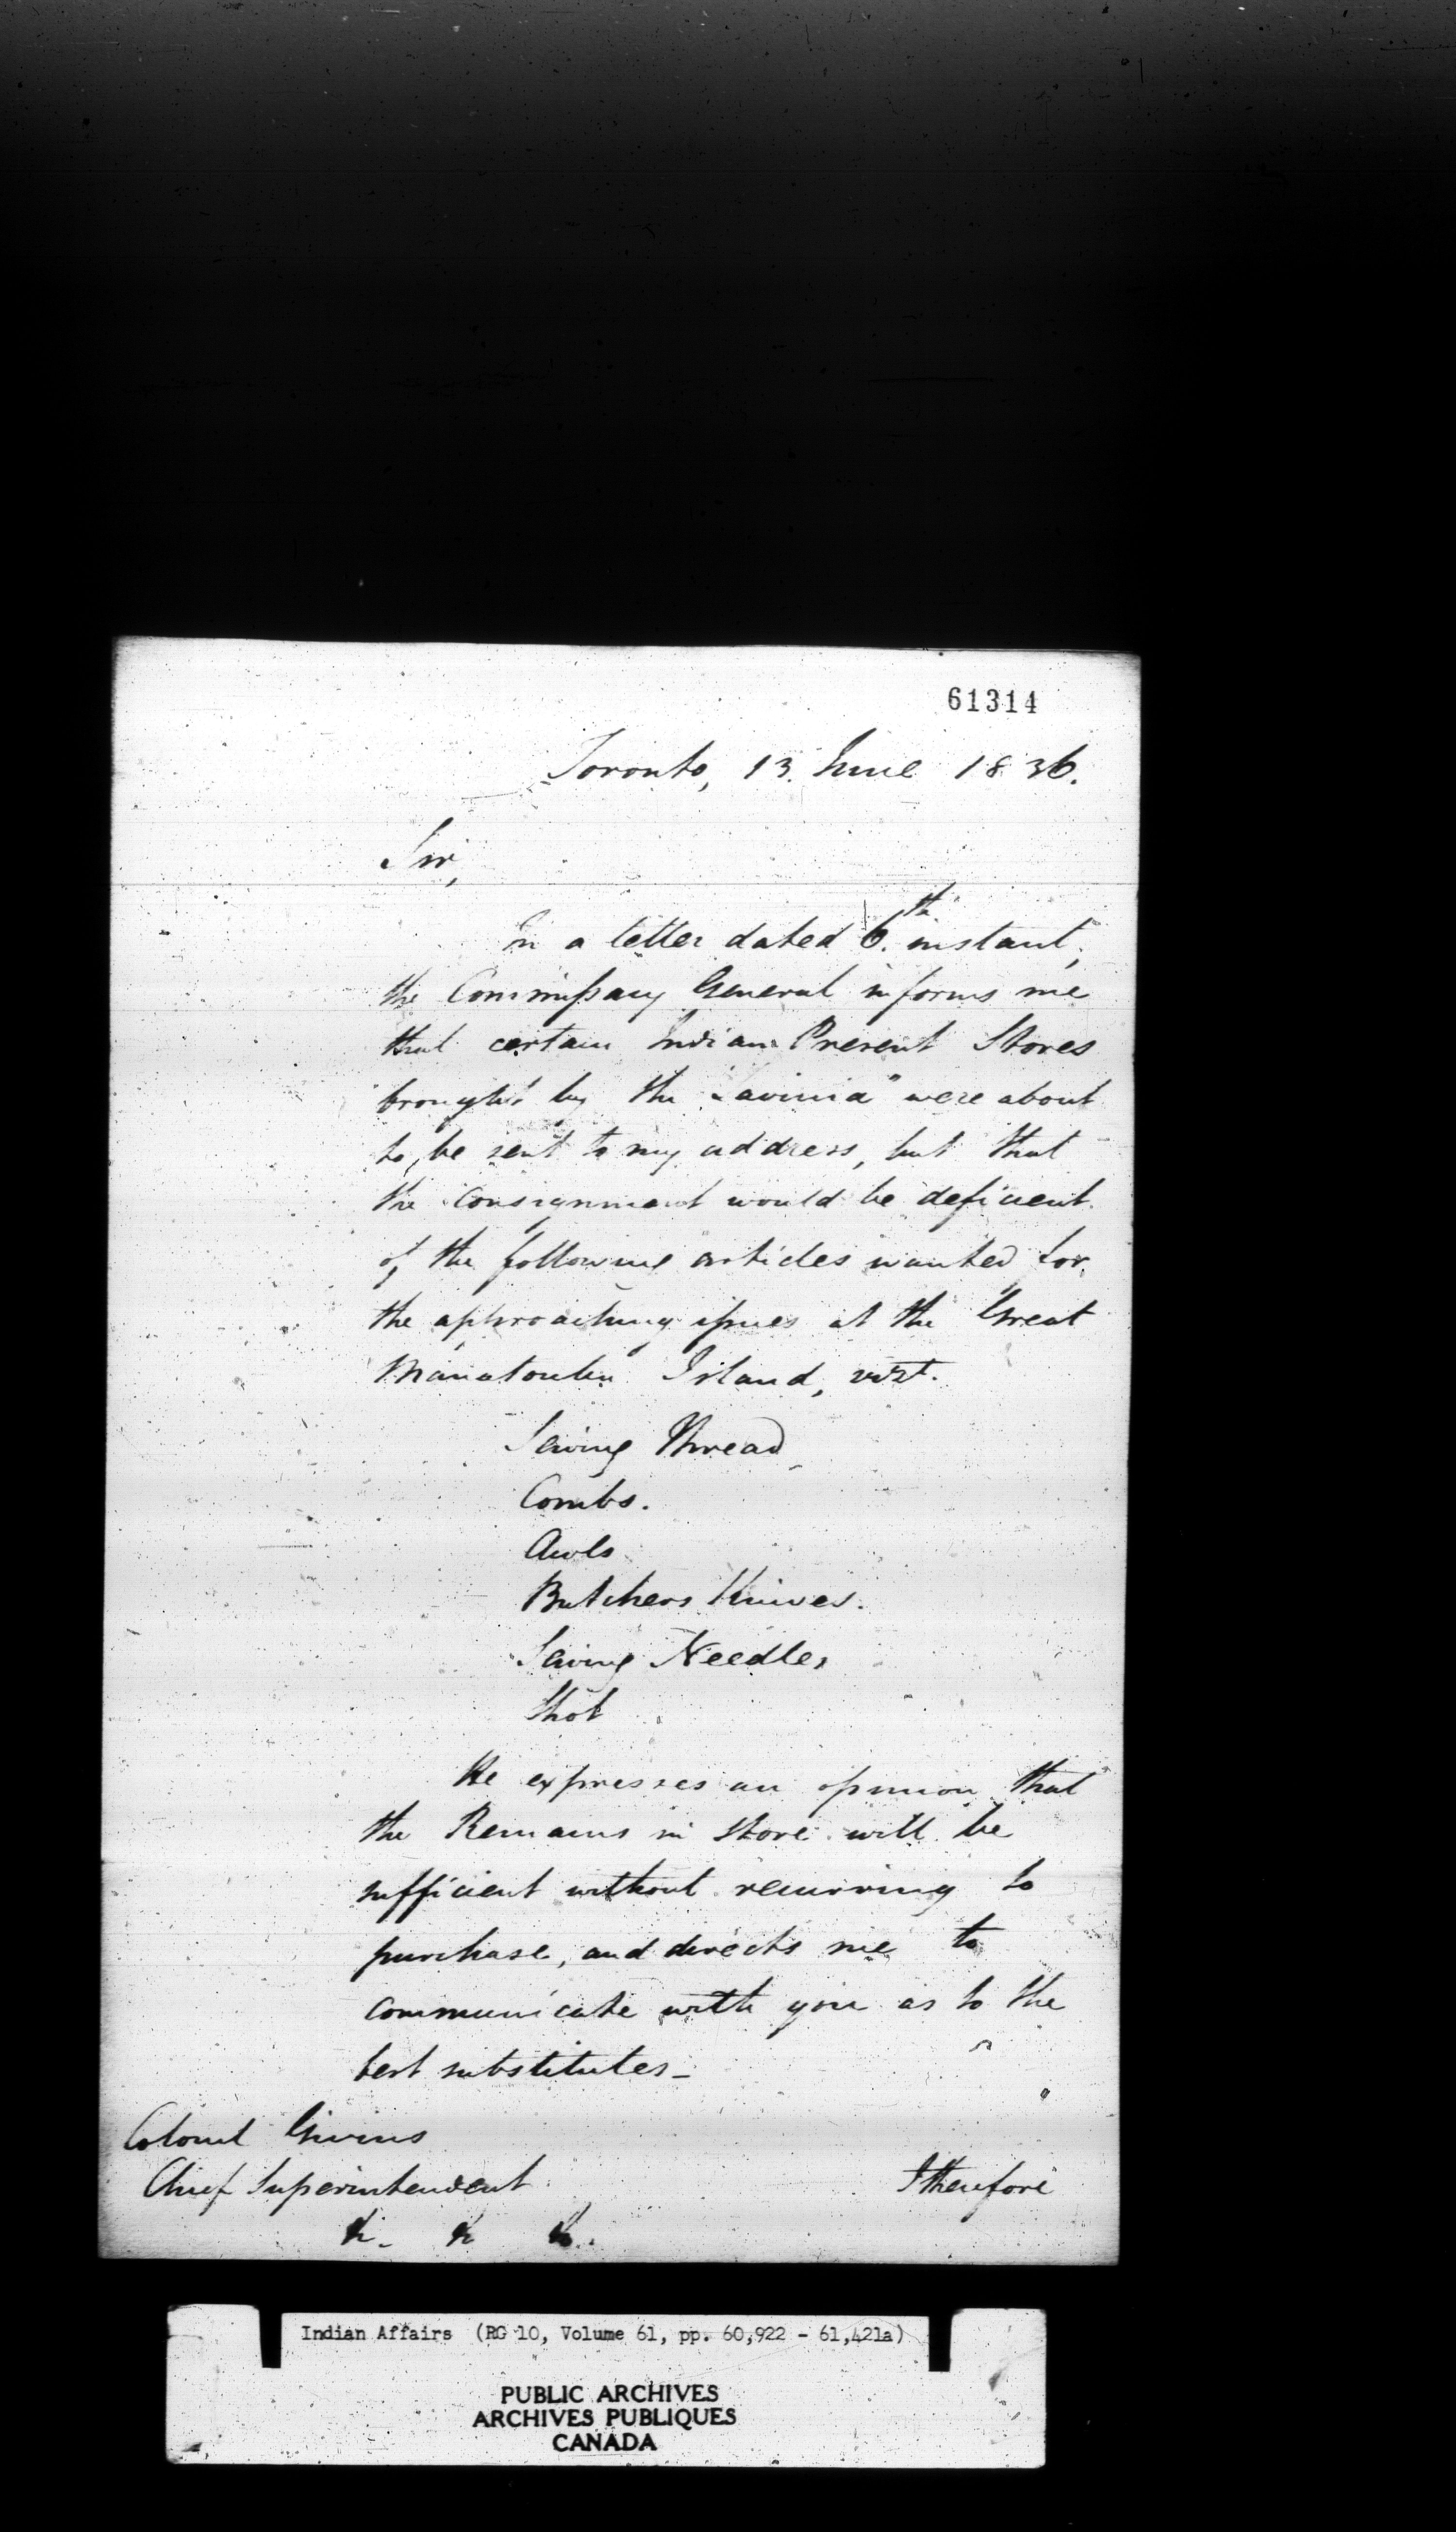 61314
Toronto, 13. June 1836.
Sir,
In a letter dated 6.th instant,
the Commissary General informs me
that certain Indian Present Stores
brought by the "Lavinia" were about
to be sent to my address, but that
the consignment would be deficient
of the following articles wanted for
the approaching issues at the Great
Manatoulin Island, vizt.
Sewing Thread
Combs.
Awls
Butchers Knives.
Sewing Needles
Shot
He expresses an opinion that
the Remains in Store will be
sufficient without recurring to
purchase, and directs me to
communicate with you as to the
best substitutes_
Colonel Givins
Chief Superintendent
&. & &.
I therefore
Indian Affairs (RG 10, Volume 61, pp. 60,922 - 61,421a)
PUBLIC ARCHIVES
ARCHIVES PUBLIQUES
CANADA